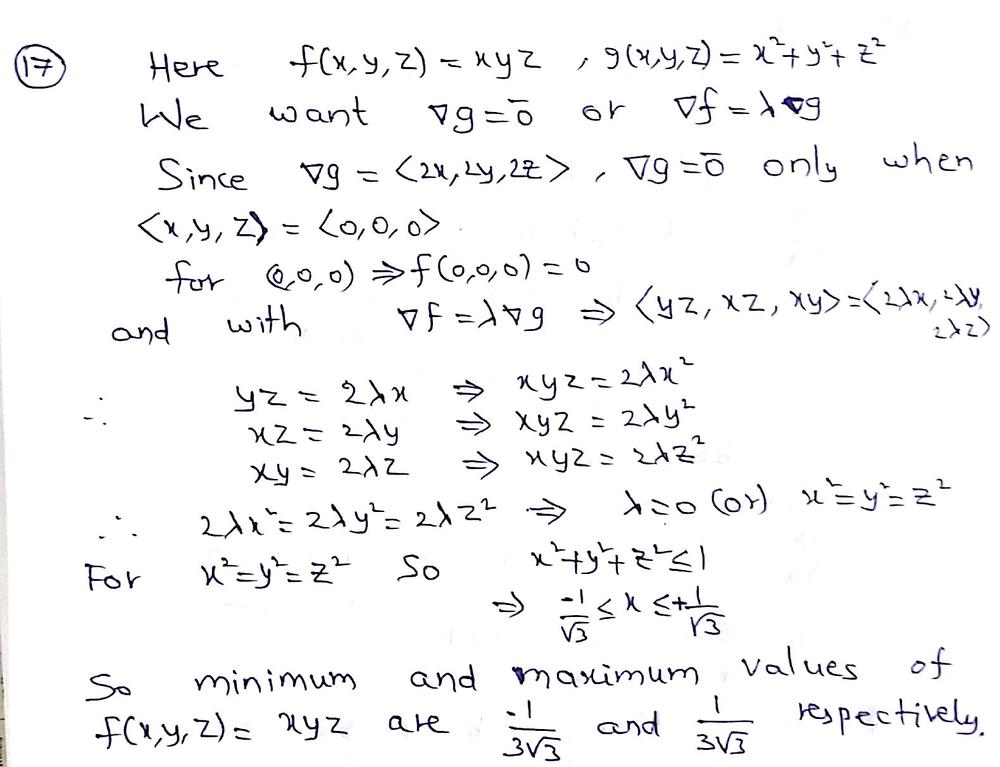 17 Here f(x,y,z) = xyz , g(x,y,z) = x²+y²+z²
We want ∇g = 0̄ or ∇f = λ∇g
Since ∇g = <2x,2y,2z> , ∇g = 0̄ only when
<x,y,z> = <0,0,0>.
for (0,0,0) ⇒ f(0,0,0) = 0
and with ∇f = λ∇g ⇒ <yz, xz, xy> = <2λx, 2λy,
2λz>
∴ yz = 2λx ⇒ xyz = 2λx²
xz = 2λy ⇒ xyz = 2λy²
xy = 2λz ⇒ xyz = 2λz²
∴ 2λx² = 2λy² = 2λz² ⇒ λ=0 (or) x²=y²=z²
For x²=y²=z² So x²+y²+z²≤1
⇒ -1/√3 ≤ x ≤ +1/√3
So minimum and maximum values of
f(x,y,z) = xyz are -1/3√3 and 1/3√3 respectively.